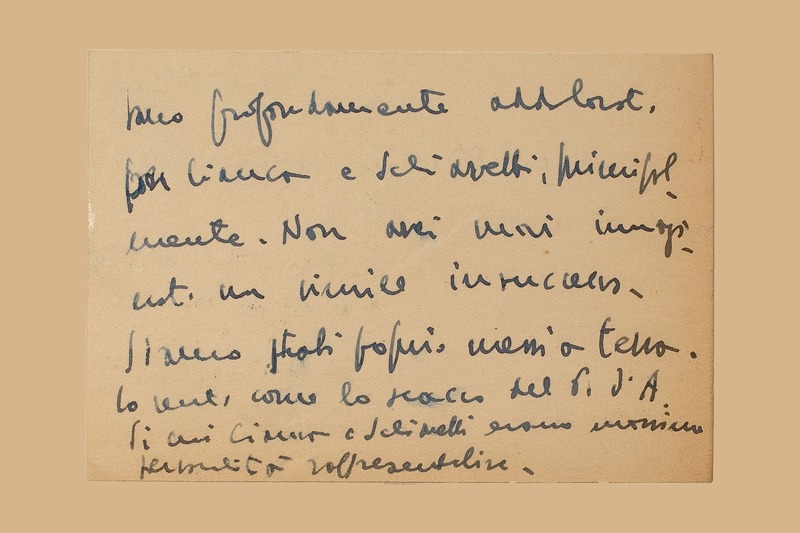 sono profondamente addolorat.
per Cianca e Schiavetti, principal-
mente. Non avei mai immagi-
nat. un simile insuccess.
Siamo stati proprio messi a terra.
lo sent. come lo scacco del P. d'A.
di cui Cianca e Schiavetti erano massime
personalità rappresentative.